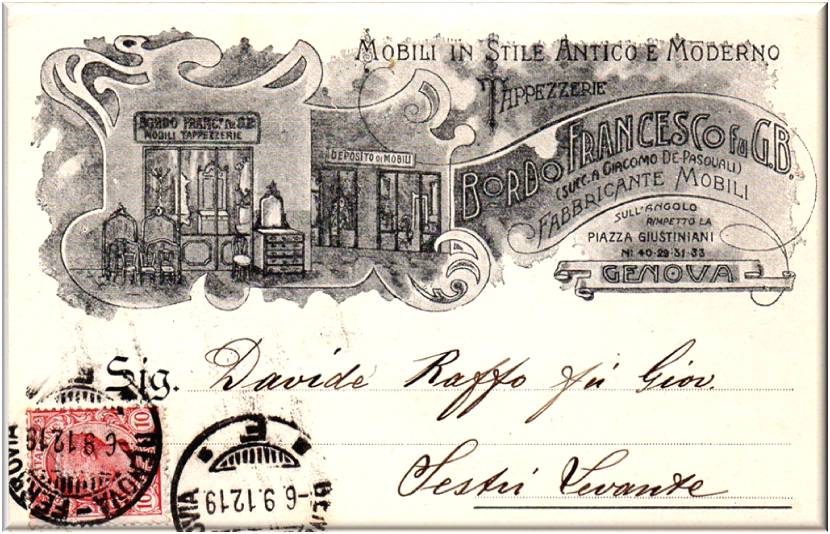 MOBILI IN STILE ANTICO E MODERNO
TAPPEZZERIE
BORDO FRANCESCO fu G.B.
(SUCC. A GIACOMO DE PASQUALI)
FABBRICANTE MOBILI
SULL'ANGOLO
RIMPETTO LA
PIAZZA GIUSTINIANI
Nⁱ 40-29-31-33
GENOVA
BORDO FRANC. fu G.B.
MOBILI TAPPEZZERIE
DEPOSITO DI MOBILI
Sig. Davide Raffo fu Giov.
Sestri Levante
10
10
-6.9.12 19
GENOVA-FERROVIA
E
-6.9.12 19